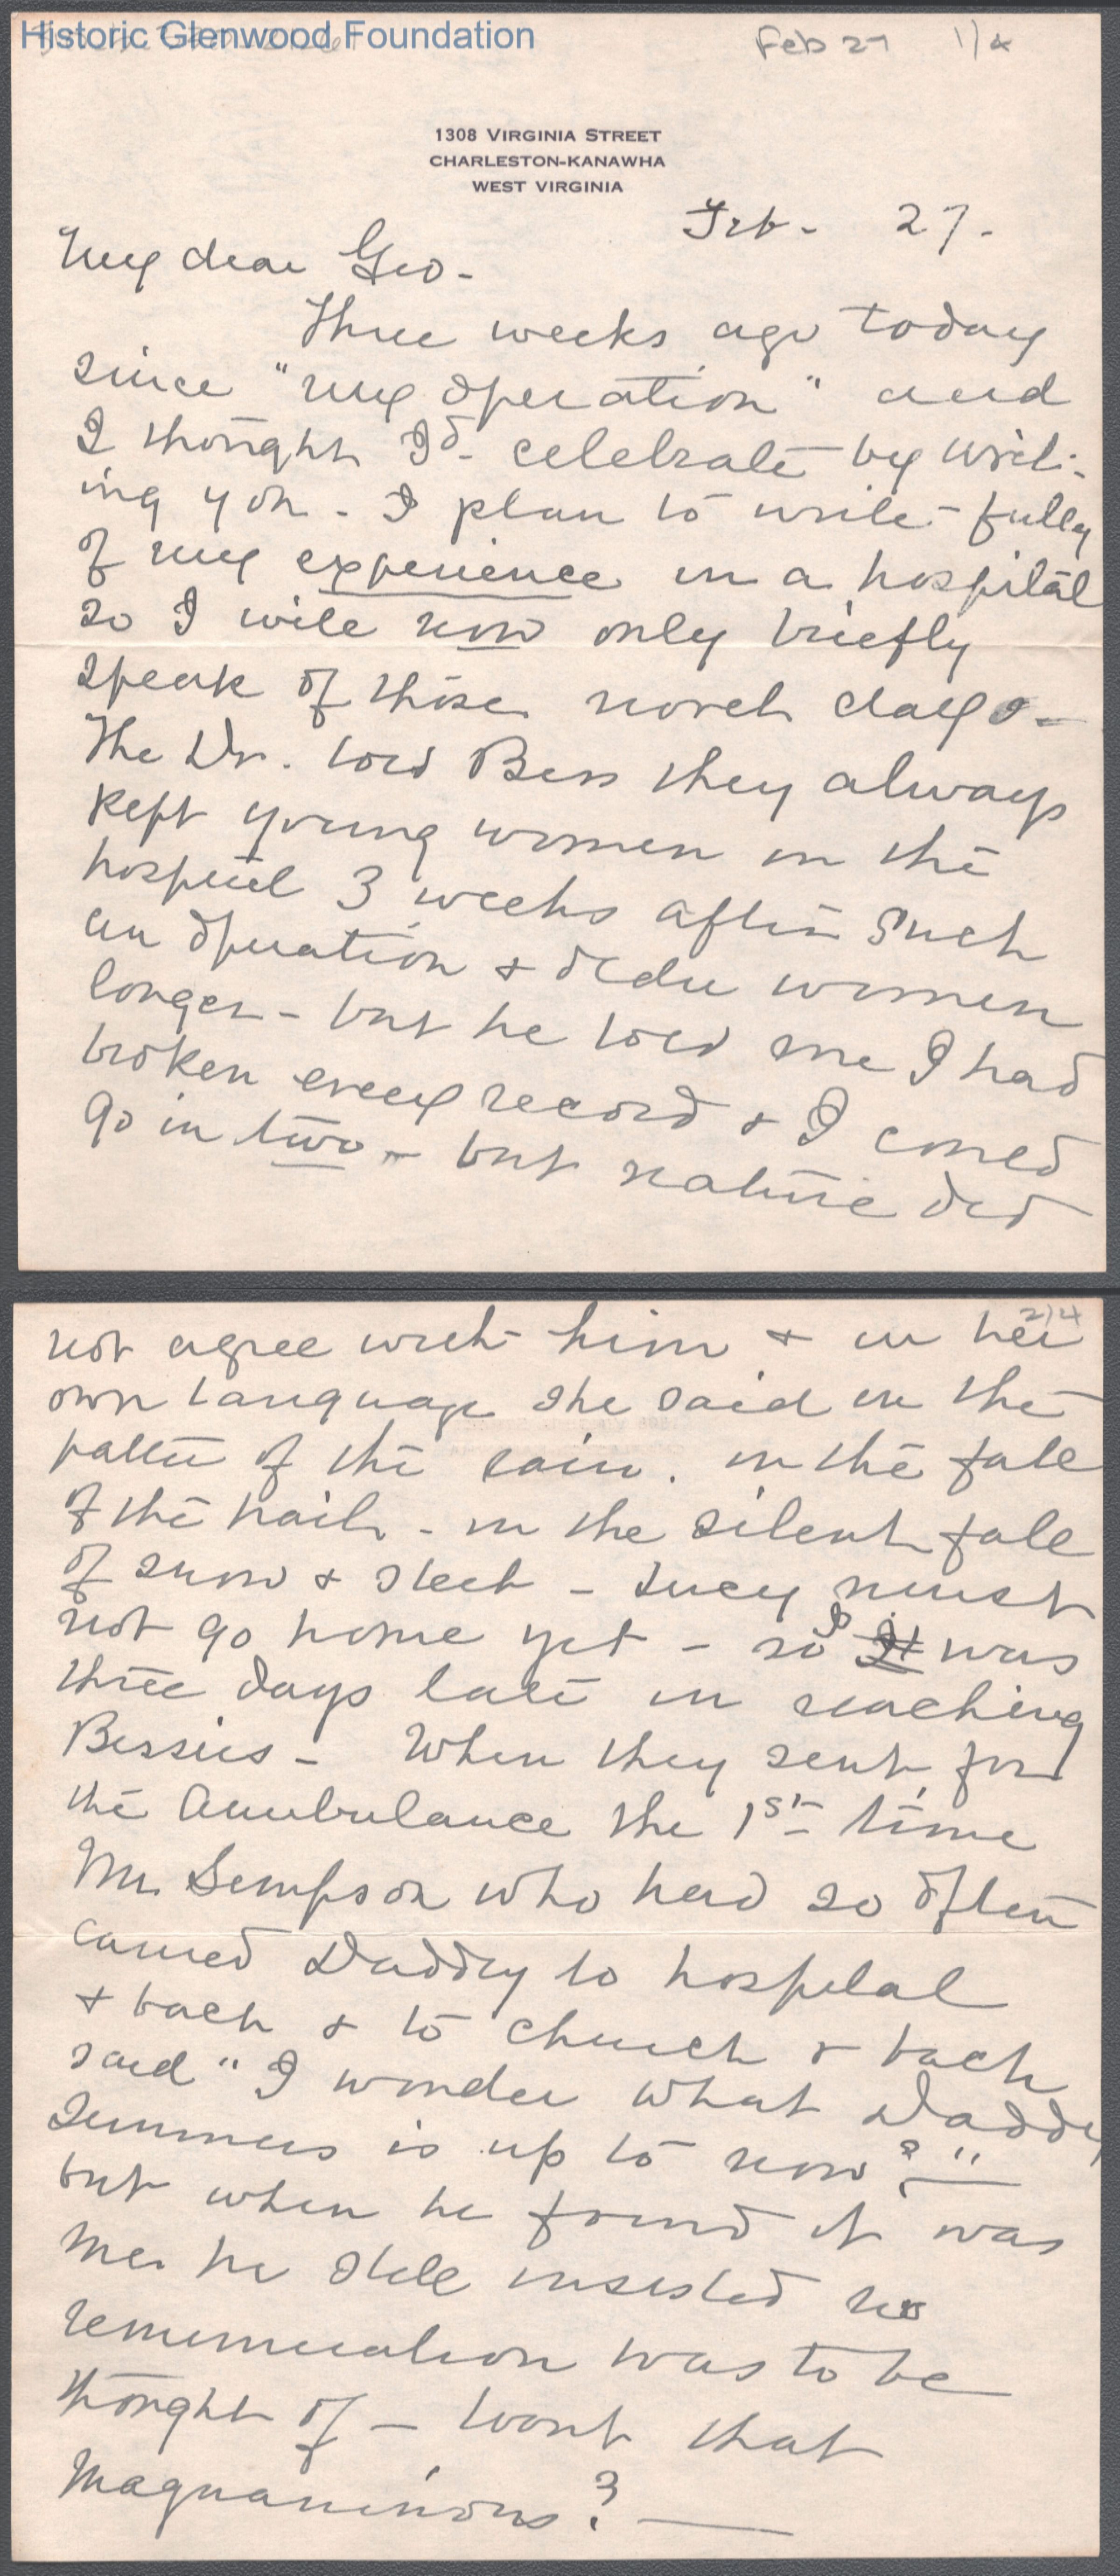 Historic Glenwood Foundation
Feb 27 1/4
1308 VIRGINIA STREET
CHARLESTON-KANAWHA
WEST VIRGINIA
Feb- 27-
My dear Geo-
Three weeks ago today
since "my operation" and
I thought I'd- celebrate by writ-
ing you - I plan to write fully
of my experience in a hospital
so I will now only briefly
speak of those novel days-
The Dr. told Bess they always
kept young women in the
hospital 3 weeks after such
an operation & older women
longer - but he told me I had
broken every record & I could
go in two - but nature did
2/4
not agree with him & in her
own language she said in the
patter of the rain. in the fall
of the hail - in the silent fall
of snow & sleet - Lucy must
not go home yet - so I It was
three days late in reaching
Bessies - When they sent for
the Ambulance the 1st time
Mr. Simpson who had so often
carried Daddy to hospital
& back & to church & back
said "I wonder what Daddy
Summers is up to now?"
but when he found it was
me he still insisted no
remuneration was to be
thought of - Wasnt that
Magnanimous?